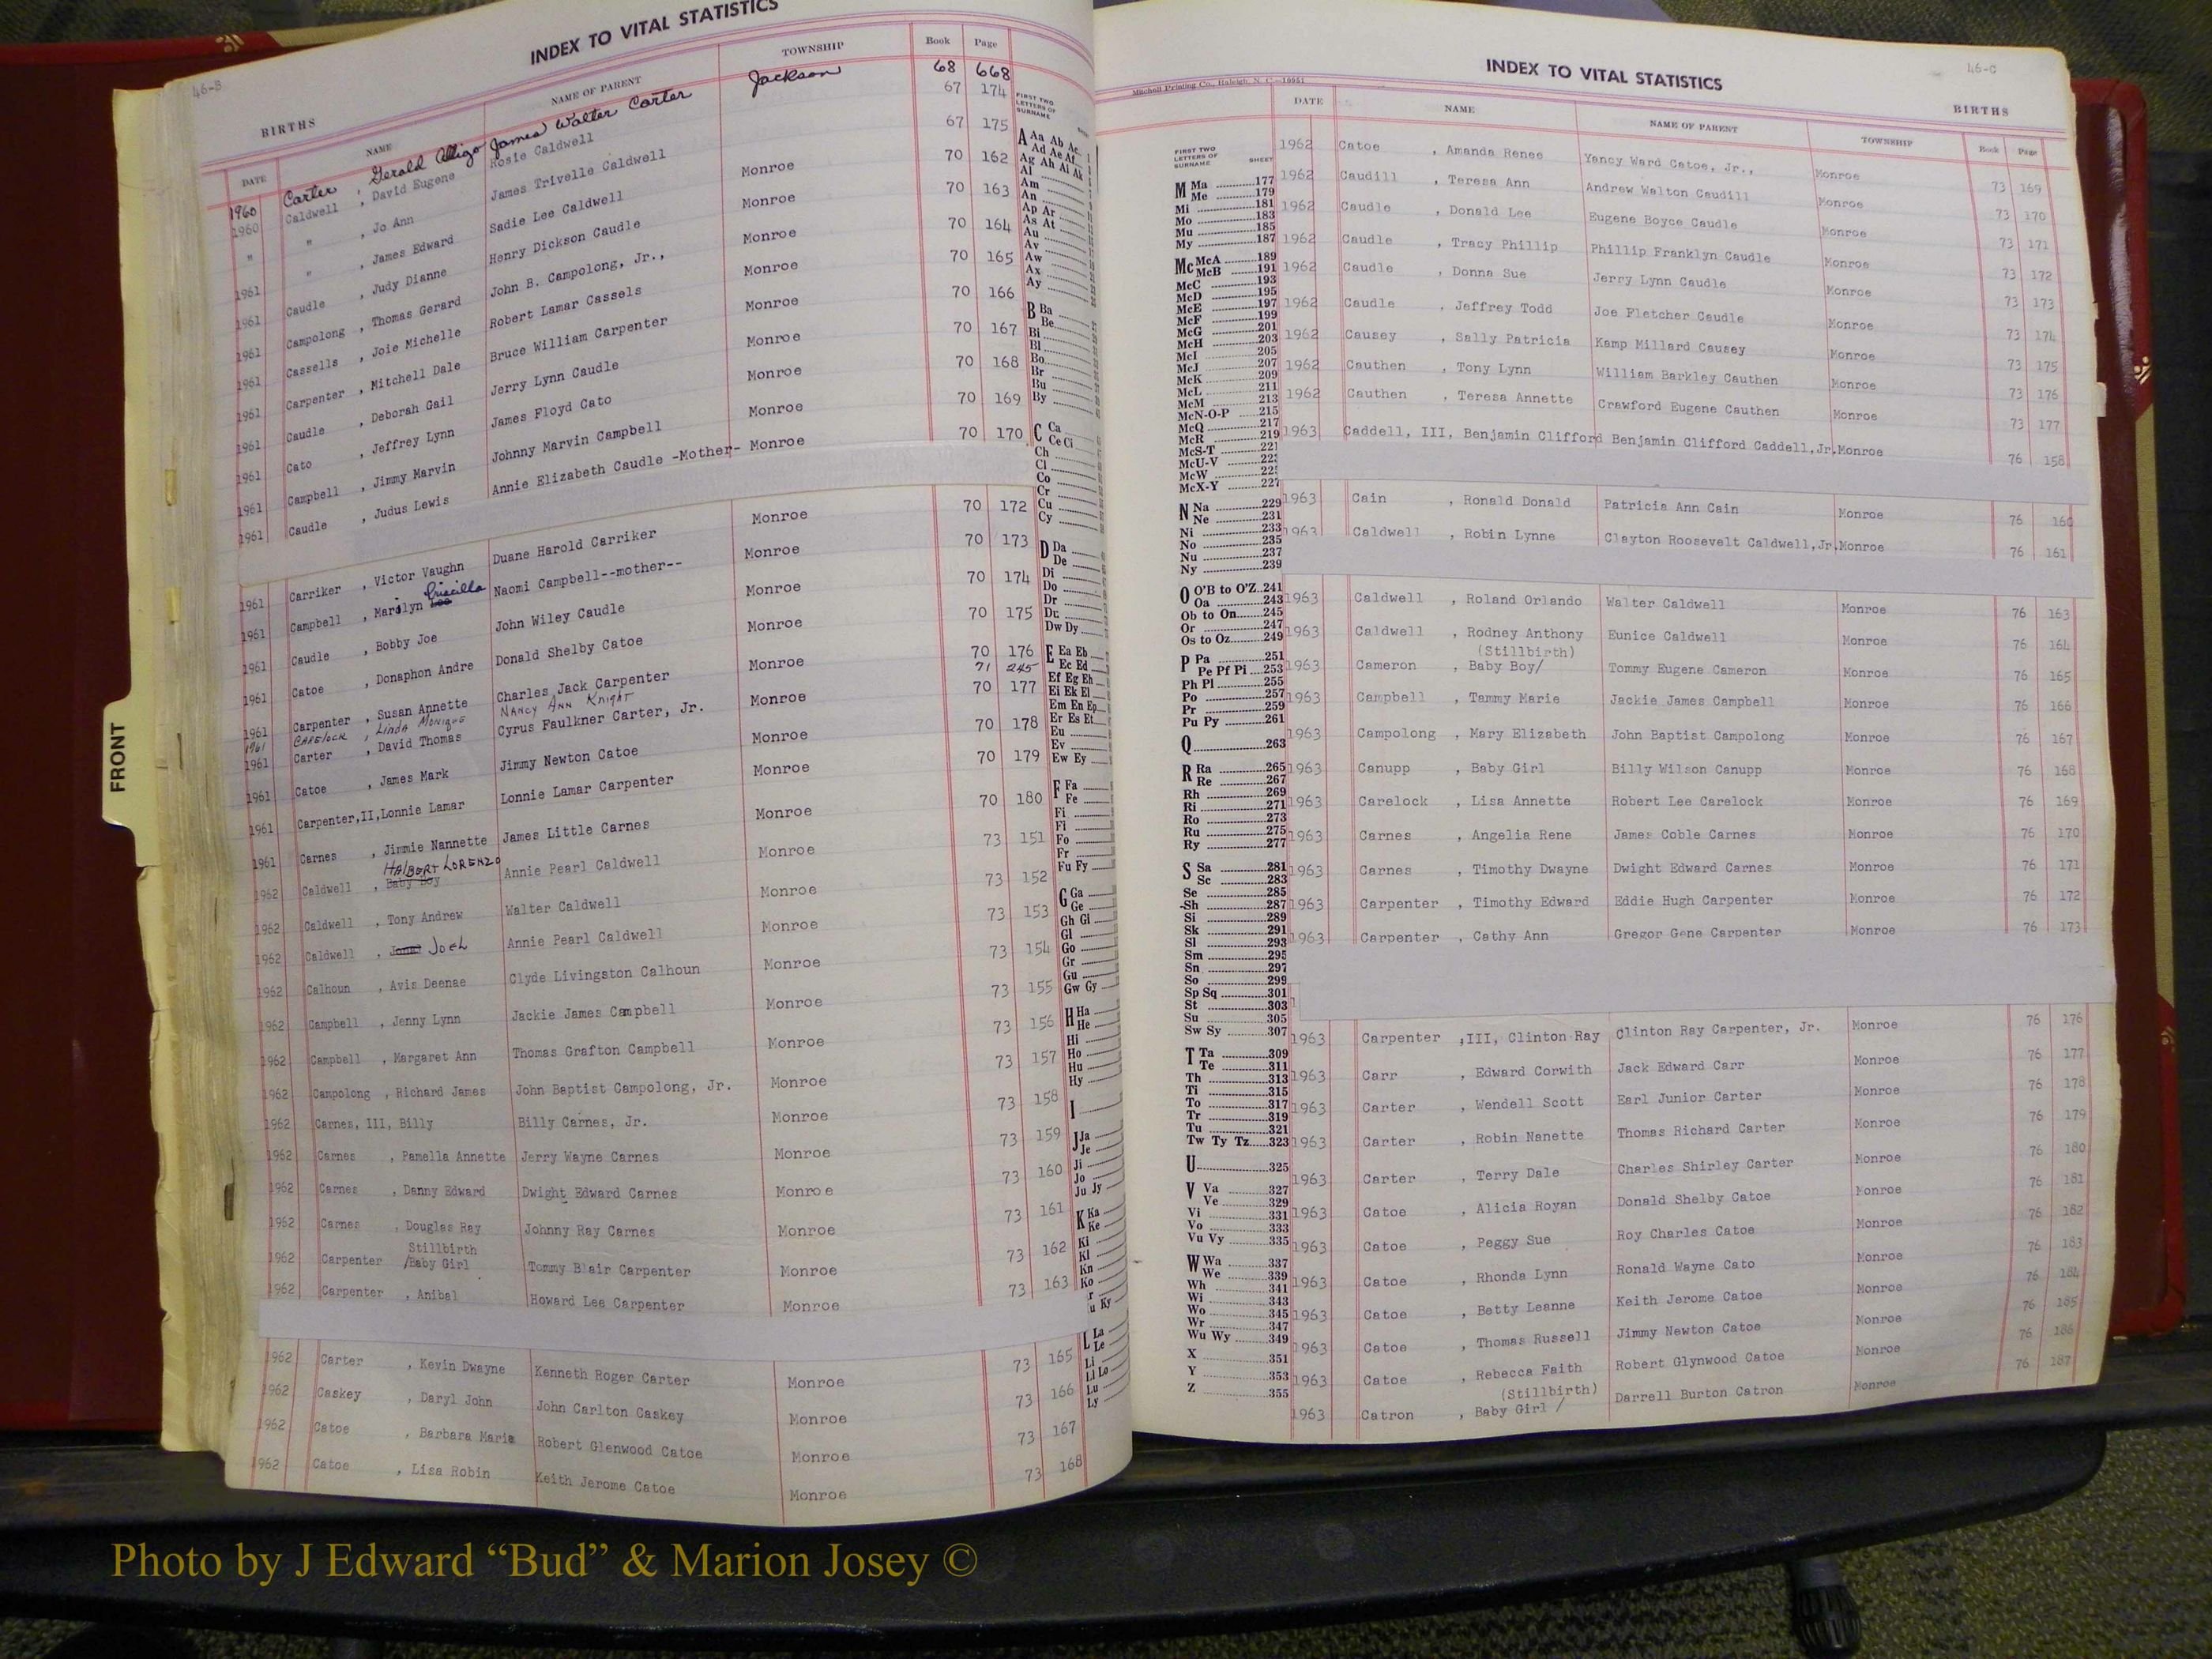 46-B
INDEX TO VITAL STATISTICS
BIRTHS
DATE NAME NAME OF PARENT TOWNSHIP Book Page
1960 Carter , Gerald James Walter Carter Jackson 68 668
1960 Caldwell , David Eugene Rosie Caldwell 67 174
" " , Jo Ann James Trivelle Caldwell 67 175
" , James Edward Sadie Lee Caldwell Monroe 70 162
1961 Caudle , Judy Dianne Henry Dickson Caudle Monroe 70 163
1961 Campolong , Thomas Gerard John B. Campolong, Jr., Monroe 70 164
1961 Cassells , Joie Michelle Robert Lamar Cassels Monroe 70 165
1961 Carpenter , Mitchell Dale Bruce William Carpenter Monroe 70 166
1961 Caudle , Deborah Gail Jerry Lynn Caudle Monroe 70 167
1961 Cato , Jeffrey Lynn James Floyd Cato Monroe 70 168
1961 Campbell , Jimmy Marvin Johnny Marvin Campbell Monroe 70 169
1961 Caudle , Judus Lewis Annie Elizabeth Caudle -Mother- Monroe 70 170
1961 Carriker , Victor Vaughn Duane Harold Carriker Monroe 70 172
1961 Campbell , Marilyn Lee Priscilla Naomi Campbell--mother-- Monroe 70 173
1961 Caudle , Bobby Joe John Wiley Caudle Monroe 70 174
1961 Catoe , Donaphon Andre Donald Shelby Catoe Monroe 70 175
1961 Carpenter , Susan Annette Charles Jack Carpenter Monroe 70 176
1961 CARELOCK , LINDA MONIQUE NANCY ANN KNIGHT 71 245
1961 Carter , David Thomas Cyrus Faulkner Carter, Jr. Monroe 70 177
1961 Catoe , James Mark Jimmy Newton Catoe Monroe 70 178
1961 Carpenter,II,Lonnie Lamar Lonnie Lamar Carpenter Monroe 70 179
1961 Carnes , Jimmie Nannette James Little Carnes Monroe 70 180
HALBERT LORENZO
1962 Caldwell , Baby Boy Annie Pearl Caldwell Monroe 73 151
1962 Caldwell , Tony Andrew Walter Caldwell Monroe 73 152
1962 Caldwell , JOEL Annie Pearl Caldwell Monroe 73 153
1962 Calhoun , Avis Deenae Clyde Livingston Calhoun Monroe 73 154
1962 Campbell , Jenny Lynn Jackie James Campbell Monroe 73 155
1962 Campbell , Margaret Ann Thomas Grafton Campbell Monroe 73 156
1962 Campolong , Richard James John Baptist Campolong, Jr. Monroe 73 157
1962 Carnes, III, Billy Billy Carnes, Jr. Monroe 73 158
1962 Carnes , Pamella Annette Jerry Wayne Carnes Monroe 73 159
1962 Carnes , Danny Edward Dwight Edward Carnes Monroe 73 160
1962 Carnes , Douglas Ray Johnny Ray Carnes Monroe 73 161
Stillbirth
1962 Carpenter /Baby Girl Tommy Blair Carpenter Monroe 73 162
1962 Carpenter , Anibal Howard Lee Carpenter Monroe 73 163
1962 Carter , Kevin Dwayne Kenneth Roger Carter Monroe 73 165
1962 Caskey , Daryl John John Carlton Caskey Monroe 73 166
1962 Catoe , Barbara Marie Robert Glenwood Catoe Monroe 73 167
1962 Catoe , Lisa Robin Keith Jerome Catoe Monroe 73 168
FIRST TWO
LETTERS OF
SURNAME
A Aa Ab Ac
Ad Ae Af
Ag Ah Ai Ak
Al
Am
An
Ap Ar
As At
Au
Av
Aw
Ax
Ay
B Ba
Be
Bi
Bl
Bo
Br
Bu
By
C Ca
Ce Ci
Ch
Cl
Co
Cr
Cu
Cy
D Da
De
Di
Do
Dr
Du
Dw Dy
E Ea Eb
Ec Ed
Ef Eg Eh
Ei Ek El
Em En Ep
Er Es Et
Eu
Ev
Ew Ey
F Fa
Fe
Fi
Fl
Fo
Fr
Fu Fy
G Ga
Ge
Gh Gi
Gl
Go
Gr
Gu
Gw Gy
H Ha
He
Hi
Ho
Hu
Hy
I
J Ja
Je
Ji
Jo
Ju Jy
K Ka
Ke
Ki
Kl
Kn
Ko
r
u Ky
L La
Le
Li
Ll Lo
Lu
Ly
FRONT
46-C
Mitchell Printing Co., Raleigh, N. C.—10951
INDEX TO VITAL STATISTICS
BIRTHS
DATE NAME NAME OF PARENT TOWNSHIP Book Page
1962 Catoe , Amanda Renee Yancy Ward Catoe, Jr., Monroe 73 169
1962 Caudill , Teresa Ann Andrew Walton Caudill Monroe 73 170
1962 Caudle , Donald Lee Eugene Boyce Caudle Monroe 73 171
1962 Caudle , Tracy Phillip Phillip Franklyn Caudle Monroe 73 172
1962 Caudle , Donna Sue Jerry Lynn Caudle Monroe 73 173
1962 Caudle , Jeffrey Todd Joe Fletcher Caudle Monroe 73 174
1962 Causey , Sally Patricia Kamp Millard Causey Monroe 73 175
1962 Cauthen , Tony Lynn William Barkley Cauthen Monroe 73 176
1962 Cauthen , Teresa Annette Crawford Eugene Cauthen Monroe 73 177
1963 Caddell, III, Benjamin Clifford Benjamin Clifford Caddell,Jr. Monroe 76 158
1963 Cain , Ronald Donald Patricia Ann Cain Monroe 76 160
1963 Caldwell , Robin Lynne Clayton Roosevelt Caldwell,Jr. Monroe 76 161
1963 Caldwell , Roland Orlando Walter Caldwell Monroe 76 163
1963 Caldwell , Rodney Anthony Eunice Caldwell Monroe 76 164
(Stillbirth)
1963 Cameron , Baby Boy/ Tommy Eugene Cameron Monroe 76 165
1963 Campbell , Tammy Marie Jackie James Campbell Monroe 76 166
1963 Campolong , Mary Elizabeth John Baptist Campolong Monroe 76 167
1963 Canupp , Baby Girl Billy Wilson Canupp Monroe 76 168
1963 Carelock , Lisa Annette Robert Lee Carelock Monroe 76 169
1963 Carnes , Angelia Rene James Coble Carnes Monroe 76 170
1963 Carnes , Timothy Dwayne Dwight Edward Carnes Monroe 76 171
1963 Carpenter , Timothy Edward Eddie Hugh Carpenter Monroe 76 172
1963 Carpenter , Cathy Ann Gregor Gene Carpenter Monroe 76 173
1963 Carpenter ,III, Clinton Ray Clinton Ray Carpenter, Jr. Monroe 76 176
1963 Carr , Edward Corwith Jack Edward Carr Monroe 76 177
1963 Carter , Wendell Scott Earl Junior Carter Monroe 76 178
1963 Carter , Robin Nanette Thomas Richard Carter Monroe 76 179
1963 Carter , Terry Dale Charles Shirley Carter Monroe 76 180
1963 Catoe , Alicia Royan Donald Shelby Catoe Monroe 76 181
1963 Catoe , Peggy Sue Roy Charles Catoe Monroe 76 182
1963 Catoe , Rhonda Lynn Ronald Wayne Cato Monroe 76 183
1963 Catoe , Betty Leanne Keith Jerome Catoe Monroe 76 184
1963 Catoe , Thomas Russell Jimmy Newton Catoe Monroe 76 185
1963 Catoe , Rebecca Faith Robert Glynwood Catoe Monroe 76 186
(Stillbirth)
1963 Catron , Baby Girl / Darrell Burton Catron Monroe 76 187
FIRST TWO
LETTERS OF
SURNAME SHEET
M Ma 177
Me 179
Mi 181
Mo 183
Mu 185
My 187
Mc McA 189
McB 191
McC 193
McD 195
McE 197
McF 199
McG 201
McH 203
McI 205
McJ 207
McK 209
McL 211
McM 213
McN-O-P 215
McQ 217
McR 219
McS-T 221
McU-V
McW
McX-Y 227
N Na 229
Ne 231
Ni 233
No 235
Nu 237
Ny 239
O O'B to O'Z 241
Oa 243
Ob to On 245
Or 247
Os to Oz 249
P Pa 251
Pe Pf Pi 253
Ph Pl 255
Po 257
Pr 259
Pu Py 261
Q 263
R Ra 265
Re 267
Rh 269
Ri 271
Ro 273
Ru 275
Ry 277
S Sa 281
Sc 283
Se 285
Sh 287
Si 289
Sk 291
Sl 293
Sm 295
Sn 297
So 299
Sp Sq 301
St 303
Su 305
Sw Sy 307
T Ta 309
Te 311
Th 313
Ti 315
To 317
Tr 319
Tu 321
Tw Ty Tz 323
U 325
V Va 327
Ve 329
Vi 331
Vo 333
Vu Vy 335
W Wa 337
We 339
Wh 341
Wi 343
Wo 345
Wr 347
Wu Wy 349
X 351
Y 353
Z 355
Photo by J Edward “Bud” & Marion Josey ©